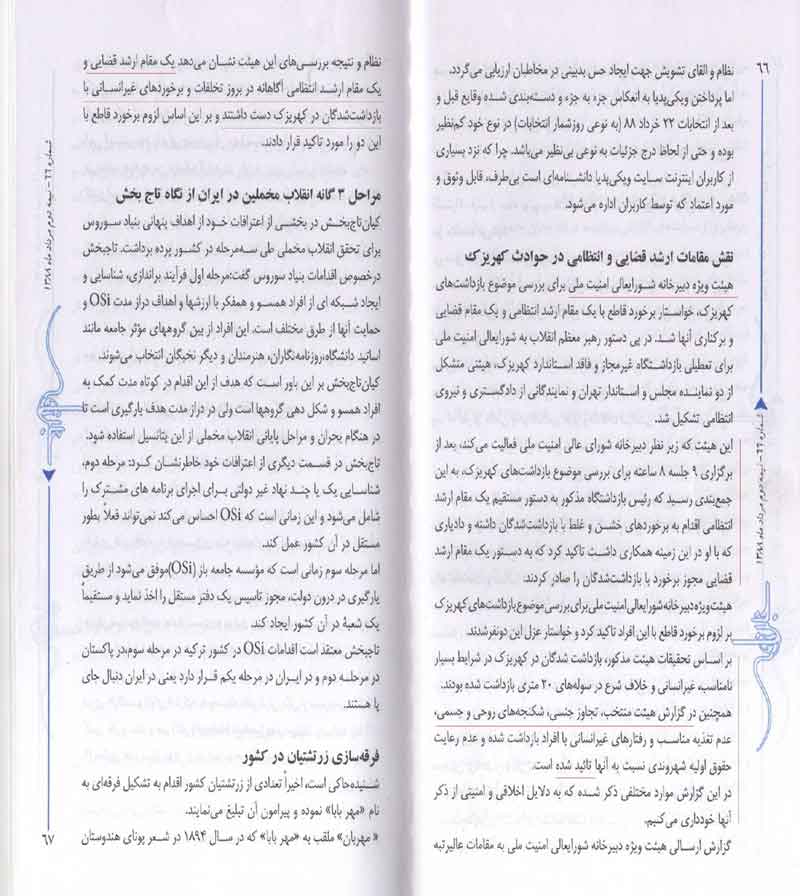 ۶۶
نظام و القای تشویش جهت ایجاد حس بدبینی در مخاطبان ارزیابی می‌گردد.
اما پرداختن ویکی‌پدیا به انعکاس جزء به جزء و دسته‌بندی شده وقایع قبل و
بعد از انتخابات ۲۲ خرداد ۸۸ (به نوعی روزشمار انتخابات) در نوع خود کم‌نظیر
بوده و حتی از لحاظ درج جزئیات به نوعی بی‌نظیر می‌باشد. چرا که نزد بسیاری
از کاربران اینترنت سایت ویکی‌پدیا دانشنامه‌ای است بی‌طرف، قابل وثوق و
مورد اعتماد که توسط کاربران اداره می‌شود.
نقش مقامات ارشد قضایی و انتظامی در حوادث کهریزک
هیئت ویژه دبیرخانه شورایعالی امنیت ملی برای بررسی موضوع بازداشت‌های
کهریزک، خواستار برخورد قاطع با یک مقام ارشد انتظامی و یک مقام قضایی
و برکناری آنها شد. در پی دستور رهبر معظم انقلاب به شورایعالی امنیت ملی
برای تعطیلی بازداشتگاه غیرمجاز و فاقد استاندارد کهریزک، هیئتی متشکل
از دو نماینده مجلس و استاندار تهران و نمایندگانی از دادگستری و نیروی
انتظامی تشکیل شد.
این هیئت که زیر نظر دبیرخانه شورای عالی امنیت ملی فعالیت می‌کند، بعد از
برگزاری ۹ جلسه ۸ ساعته برای بررسی موضوع بازداشت‌های کهریزک، به این
جمع‌بندی رسید که رئیس بازداشتگاه مذکور به دستور مستقیم یک مقام ارشد
انتظامی اقدام به برخوردهای خشن و غلط با بازداشت‌شدگان داشته و دادیاری
که با او در این زمینه همکاری داشت تاکید کرد که به دستور یک مقام ارشد
قضایی مجوز برخورد با بازداشت‌شدگان را صادر کردند.
هیئت ویژه دبیرخانه شورایعالی امنیت ملی برای بررسی موضوع بازداشت‌های کهریزک
بر لزوم برخورد قاطع با این افراد تاکید کرد و خواستار عزل این دونفرشدند.
بر اساس تحقیقات هیئت مذکور، بازداشت شدگان در کهریزک در شرایط بسیار
نامناسب، غیرانسانی و خلاف شرع در سوله‌های ۲۰ متری بازداشت شده بودند.
همچنین در گزارش هیئت منتخب، تجاوز جنسی، شکنجه‌های روحی و جسمی،
عدم تغذیه مناسب و رفتارهای غیرانسانی با افراد بازداشت شده و عدم رعایت
حقوق اولیه شهروندی نسبت به آنها تائید شده است.
در این گزارش موارد مختلفی ذکر شده که به دلایل اخلاقی و امنیتی از ذکر
آنها خودداری می‌کنیم.
گزارش ارسالی هیئت ویژه دبیرخانه شورایعالی امنیت ملی به مقامات عالیرتبه
شماره ۲۶ - نیمه دوم مرداد ماه ۱۳۸۸
نظام و نتیجه بررسی‌های این هیئت نشان می‌دهد یک مقام ارشد قضایی و
یک مقام ارشد انتظامی آگاهانه در بروز تخلفات و برخوردهای غیرانسانی با
بازداشت‌شدگان در کهریزک دست داشتند و بر این اساس لزوم برخورد قاطع با
این دو را مورد تاکید قرار دادند.
مراحل ۳ گانه انقلاب مخملین در ایران از نگاه تاج بخش
کیان‌تاج‌بخش در بخشی از اعترافات خود از اهداف پنهانی بنیاد سوروس
برای تحقق انقلاب مخملی طی سه‌مرحله در کشور پرده برداشت. تاجبخش
درخصوص اقدامات بنیاد سوروس گفت:مرحله اول فرآیند براندازی، شناسایی و
ایجاد شبکه ای از افراد همسو و همفکر با ارزشها و اهداف دراز مدت OSi و
حمایت آنها از طرق مختلف است. این افراد از بین گروههای مؤثر جامعه مانند
اساتید دانشگاه،روزنامه‌نگاران، هنرمندان و دیگر نخبگان انتخاب می‌شوند.
کیان‌تاج‌بخش بر این باور است که هدف از این اقدام در کوتاه مدت کمک به
افراد همسو و شکل دهی گروهها است ولی در دراز مدت هدف یارگیری است تا
در هنگام بحران و مراحل پایانی انقلاب مخملی از این پتانسیل استفاده شود.
تاج‌بخش در قسمت دیگری از اعترافات خود خاطرنشان کرد: مرحله دوم،
شناسایی یک یا چند نهاد غیر دولتی برای اجرای برنامه های مشترک را
شامل می‌شود و این زمانی است که OSi احساس می‌کند نمی‌تواند فعلاً بطور
مستقل در آن کشور عمل کند.
اما مرحله سوم زمانی است که مؤسسه جامعه باز (OSi)موفق می‌شود از طریق
یارگیری در درون دولت، مجوز تاسیس یک دفتر مستقل را اخذ نماید و مستقیماً
یک شعبهٔ در آن کشور ایجاد کند.
تاجبخش معتقد است اقدامات OSi در کشور ترکیه در مرحله سوم،در پاکستان
در مرحله دوم و در ایران در مرحله یکم قرار دارد یعنی در ایران دنبال جای
پا هستند.
فرقه‌سازی زرتشتیان در کشور
شنیده‌حاکی است، اخیراً تعدادی از زرتشتیان کشور اقدام به تشکیل فرقه‌ای به
نام «مهر بابا» نموده و پیرامون آن تبلیغ می‌نمایند.
« مهربان» ملقب به «مهر بابا» که در سال ۱۸۹۴ در شعر پونای هندوستان
شماره ۲۶ - نیمه دوم مرداد ماه ۱۳۸۸
۶۷